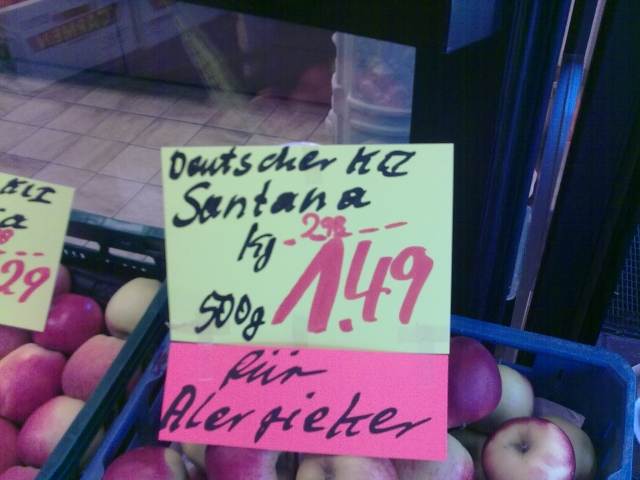 Deutscher KLI
Santana
kg 2.98
500g 1.49
für
Alergieker
KLI
a
29